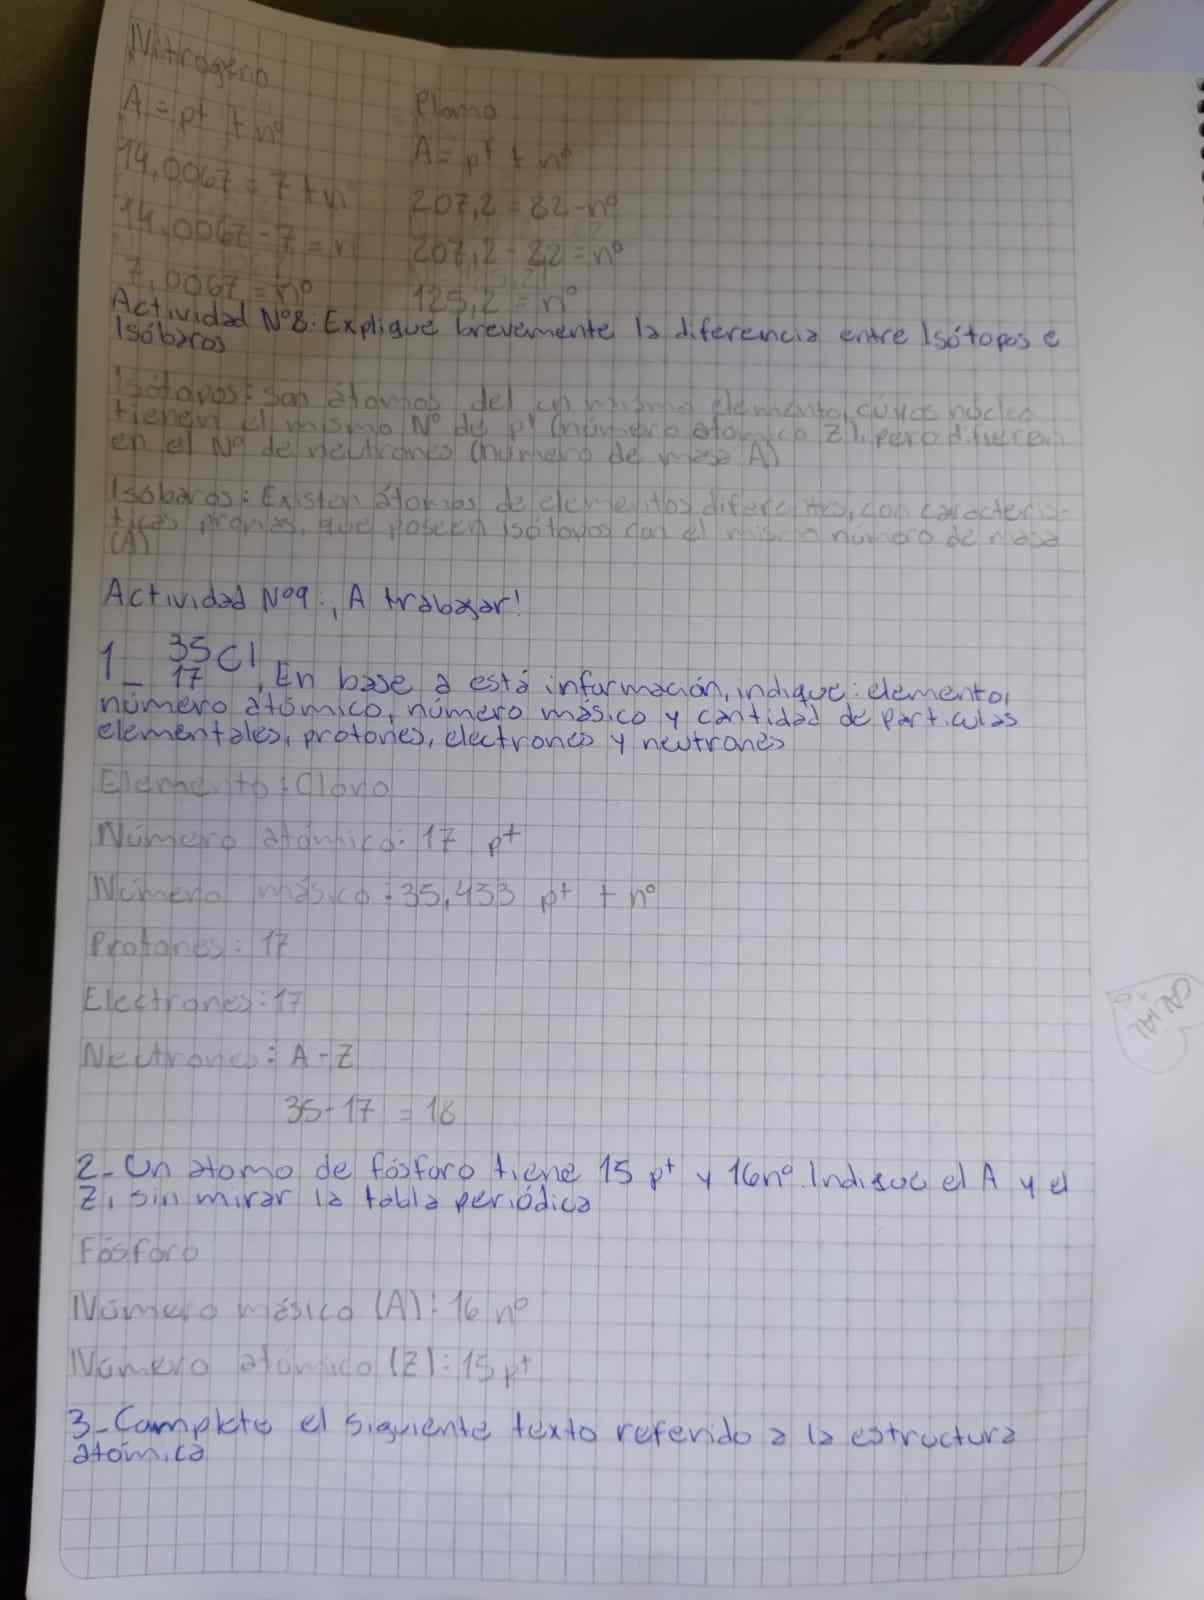 Nitrógeno
A = p+ + n°
14,0067 = 7 + n
14,0067 - 7 = n
7,0067 = n°
Plomo
A = p+ + n°
207,2 = 82 - n°
207,2 - 82 = n°
125,2 = n°
Actividad N°8: Explique brevemente la diferencia entre Isótopos e
Isóbaros
Isótopos: son átomos del un mismo elemento, cuyos núcleo
tienen el mismo N° de p+ (número atómico Z), pero difieren
en el N° de neutrones (número de masa A)
Isóbaros: Existen átomos de elementos diferentes, con caracterís-
ticas propias, que poseen isótopos con el mismo número de masa
(A)
Actividad N°9: ¡A trabajar!
1_ 35 17 Cl, En base a está información, indique: elemento,
número atómico, número másico y cantidad de partículas
elementales, protones, electrones y neutrones
Elemento: Cloro
Número atómico: 17 p+
Número másico: 35,453 p+ + n°
Protones: 17
Electrones: 17
Neutrones: A - Z
35 - 17 = 18
2_ Un atomo de fósforo tiene 15 p+ y 16 n°. Indique el A y el
Z, sin mirar la tabla periódica
Fósforo
Número másico (A): 16 n°
Número atómico (Z): 15 p+
3_ Complete el siguiente texto referido a la estructura
atómica